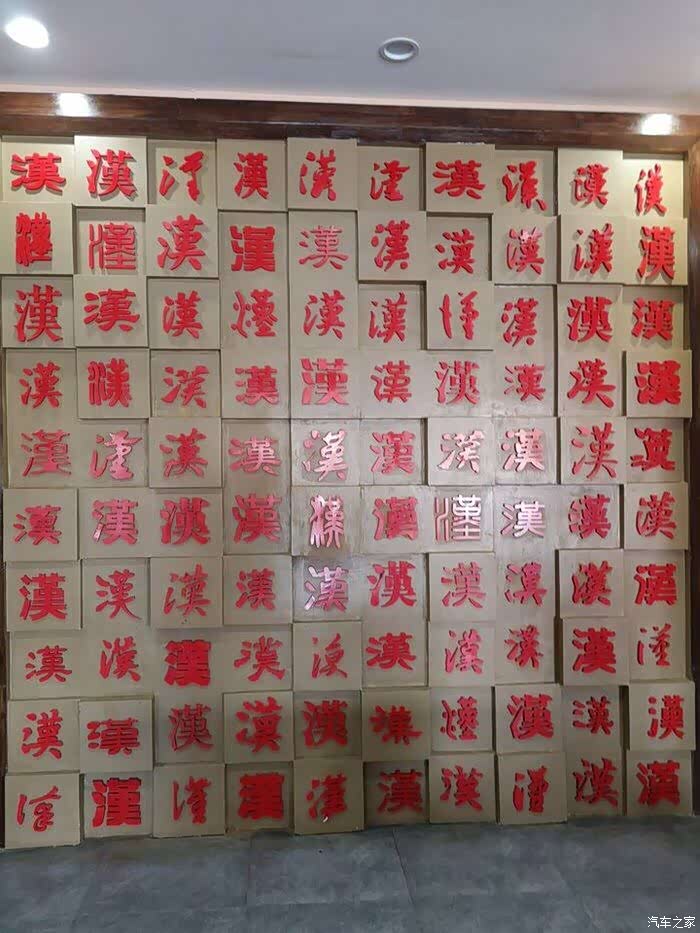 漢漢漢漢漢漢漢漢漢漢
漢漢漢漢漢漢漢漢漢漢
漢漢漢漢漢漢漢漢漢漢
漢漢漢漢漢漢漢漢漢漢
漢漢漢漢漢漢漢漢漢漢
漢漢漢漢漢漢漢漢漢漢
漢漢漢漢漢漢漢漢漢漢
漢漢漢漢漢漢漢漢漢漢
漢漢漢漢漢漢漢漢漢漢
漢漢漢漢漢漢漢漢漢漢
汽车之家